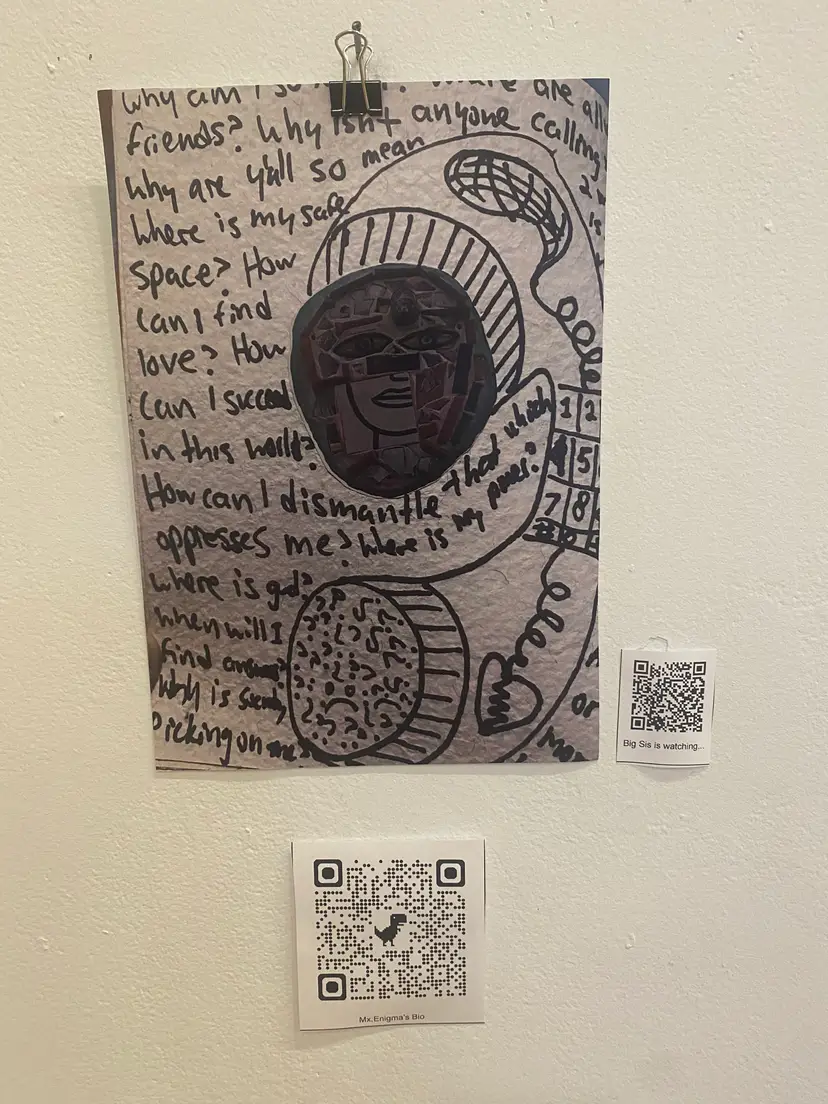 why am I so
are all
friends? Why isn't anyone calling
why are y'all so mean
Where is my safe
space? How
can I find
love? How
can I succeed
in this world?
How can I dismantle that which
oppresses me? Where is my power?
where is god?
when will I
find answers?
Why is society
picking on me?
1 2
4 5
7 8
is
or
Big Sis is watching...
Mx.Enigma's Bio